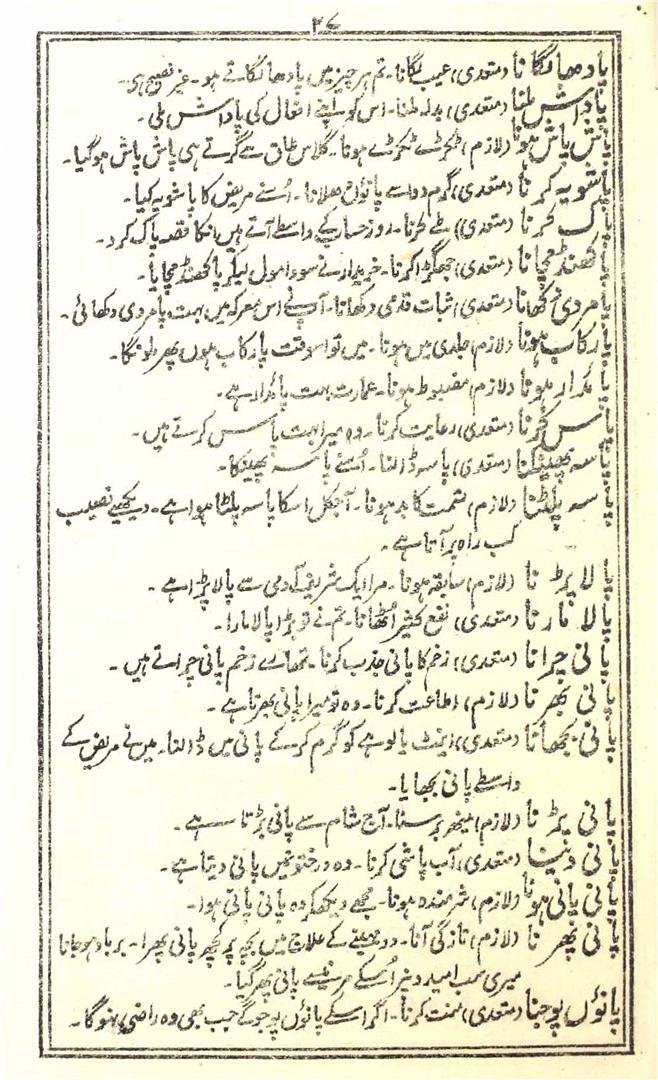 ۳۷
پا دھا لگانا (متعدی) عیب لگانا۔ تم ہر چیز میں پا دھا لگاتے ہو۔ غیر فصیح ہی۔
پاداش ملنا (متعدی) بدلہ ملنا۔ اس کو اپنے افعال کی پاداش ملی۔
پاش پاش ہونا (لازم) ٹکڑے ٹکڑے ہونا۔ گلاس طاق سے گرتے ہی پاش پاش ہو گیا۔
پاشویہ کرنا (متعدی) گرم دوا سے پانوں دھلانا۔ اُسنے مریض کا پاشویہ کیا۔
پاک کرنا (متعدی) طے کرنا۔ روز حساب کے واسطے آتے ہیں انکا قصہ پاک کرو۔
پاکھنڈ مچانا (متعدی) جھگڑا کرنا۔ خریدار نے سودا مول لیکر پاکھنڈ مچایا۔
پامردی دکھانا (متعدی) ثبات قدمی دکھانا۔ آپنے اس معرکہ میں بہت پامردی دکھائی۔
پا رکاب ہونا (لازم) جلدی میں ہونا۔ میں تو اسوقت پا رکاب ہوں پھر ملونگا۔
پائدار ہونا (لازم) مضبوط ہونا۔ عمارت بہت پائدار ہے۔
پاس کرنا (متعدی) رعایت کرنا۔ وہ میرا بہت پاس کرتے ہیں۔
پاسہ پھینکنا (متعدی) پاسہ ڈالنا۔ اُسنے پاسہ پھینکا۔
پاسہ پلٹنا (لازم) قسمت کا بد ہونا۔ آجکل اسکا پاسہ پلٹا ہوا ہے۔ دیکھیے نصیب
کب راہ پر آتا ہے۔
پالا پڑنا (لازم) سابقہ ہونا۔ مرا ایک شریف آدمی سے پالا پڑا ہے۔
پالا مارنا (متعدی) نفع کثیر اُٹھانا۔ تم نے تو بڑا پالا مارا۔
پانی چرانا (متعدی) زخم کا پانی جذب کرنا۔ تمھارے زخم پانی چراتے ہیں۔
پانی بھرنا (لازم) اطاعت کرنا۔ وہ تو میرا پانی بھرتا ہے۔
پانی بجھانا (متعدی) اینٹ یا لوہے کو گرم کرکے پانی میں ڈالنا۔ میں نے مریض کے
واسطے پانی بجھایا۔
پانی پڑنا (لازم) مینھ برسنا۔ آج شام سے پانی پڑتا ہے۔
پانی دینا (متعدی) آب پاشی کرنا۔ وہ درختونمیں پانی دیتا ہے۔
پانی پانی ہونا (لازم) شرمندہ ہونا۔ مجھے دیکھکر وہ پانی پانی ہوا۔
پانی پھرنا (لازم) تازگی آنا۔ دو مہینے کے علاج میں بچہ پر کچھ پانی پھرا۔ برباد ہو جانا
میری سب امیدونپر اُسکے مرنیسے پانی پھر گیا۔
پانوں پوجنا (متعدی) منت کرنا۔ اگر اسکے پانوں پوجوگے جب بھی وہ راضی نہوگا۔